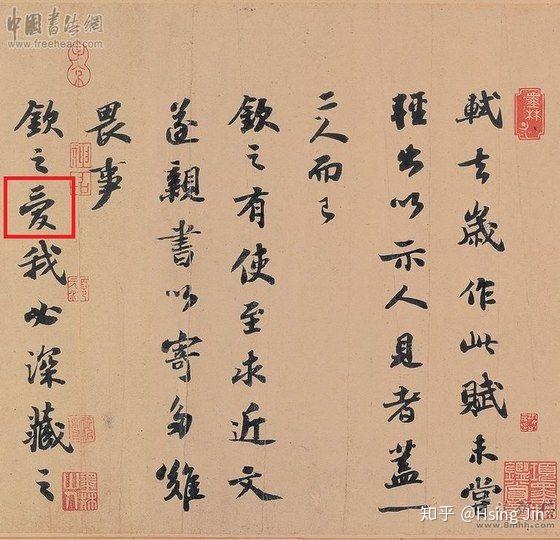 軾去歲作此賦未嘗
輕出以示人見者蓋一
二人而已
欽之有使至求近文
遂親書以寄多難
畏事
欽之愛我必深藏之
中国書法網
www.freehead.com
知乎 @Hsing Jin
www.8mhh.com